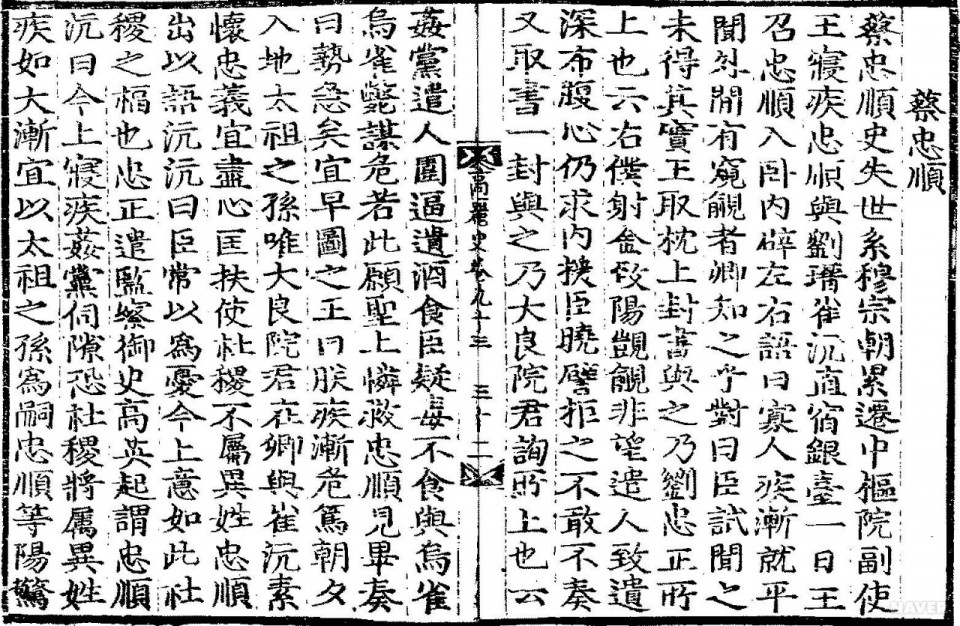 蔡忠順
蔡忠順史失世系穆宗朝累遷中樞院副使
王寢疾忠順與劉瑨崔沆直宿銀臺一日王
召忠順入卧內辟左右語曰寡人疾漸就平
聞外閒有窺覦者卿知之乎對曰臣試聞之
未得其實王取枕上封書與之乃劉忠正所
上也云右僕射金致陽覬覦非望遣人致遺
深布腹心仍求內援臣曉譬拒之不敢不奏
又取書一封與之乃大良院君詢所上也云
高麗史卷九十三 三十二
姦黨遣人圍逼遺酒食臣疑毒不食與烏雀
烏雀斃謀危若此願聖上憐救忠順見畢奏
曰勢急矣宜早圖之王曰朕疾漸危篤朝夕
入地太祖之孫唯大良院君在卿與崔沆素
懷忠義宜盡心匡扶使社稷不屬異姓忠順
出以語沆沆曰臣常以爲憂今上意如此社
稷之福也忠正遣監察御史高英起謂忠順
沆曰今上寢疾姦黨伺隙恐社稷將屬異姓
疾如大漸宜以太祖之孫爲嗣忠順等陽驚
NAVER